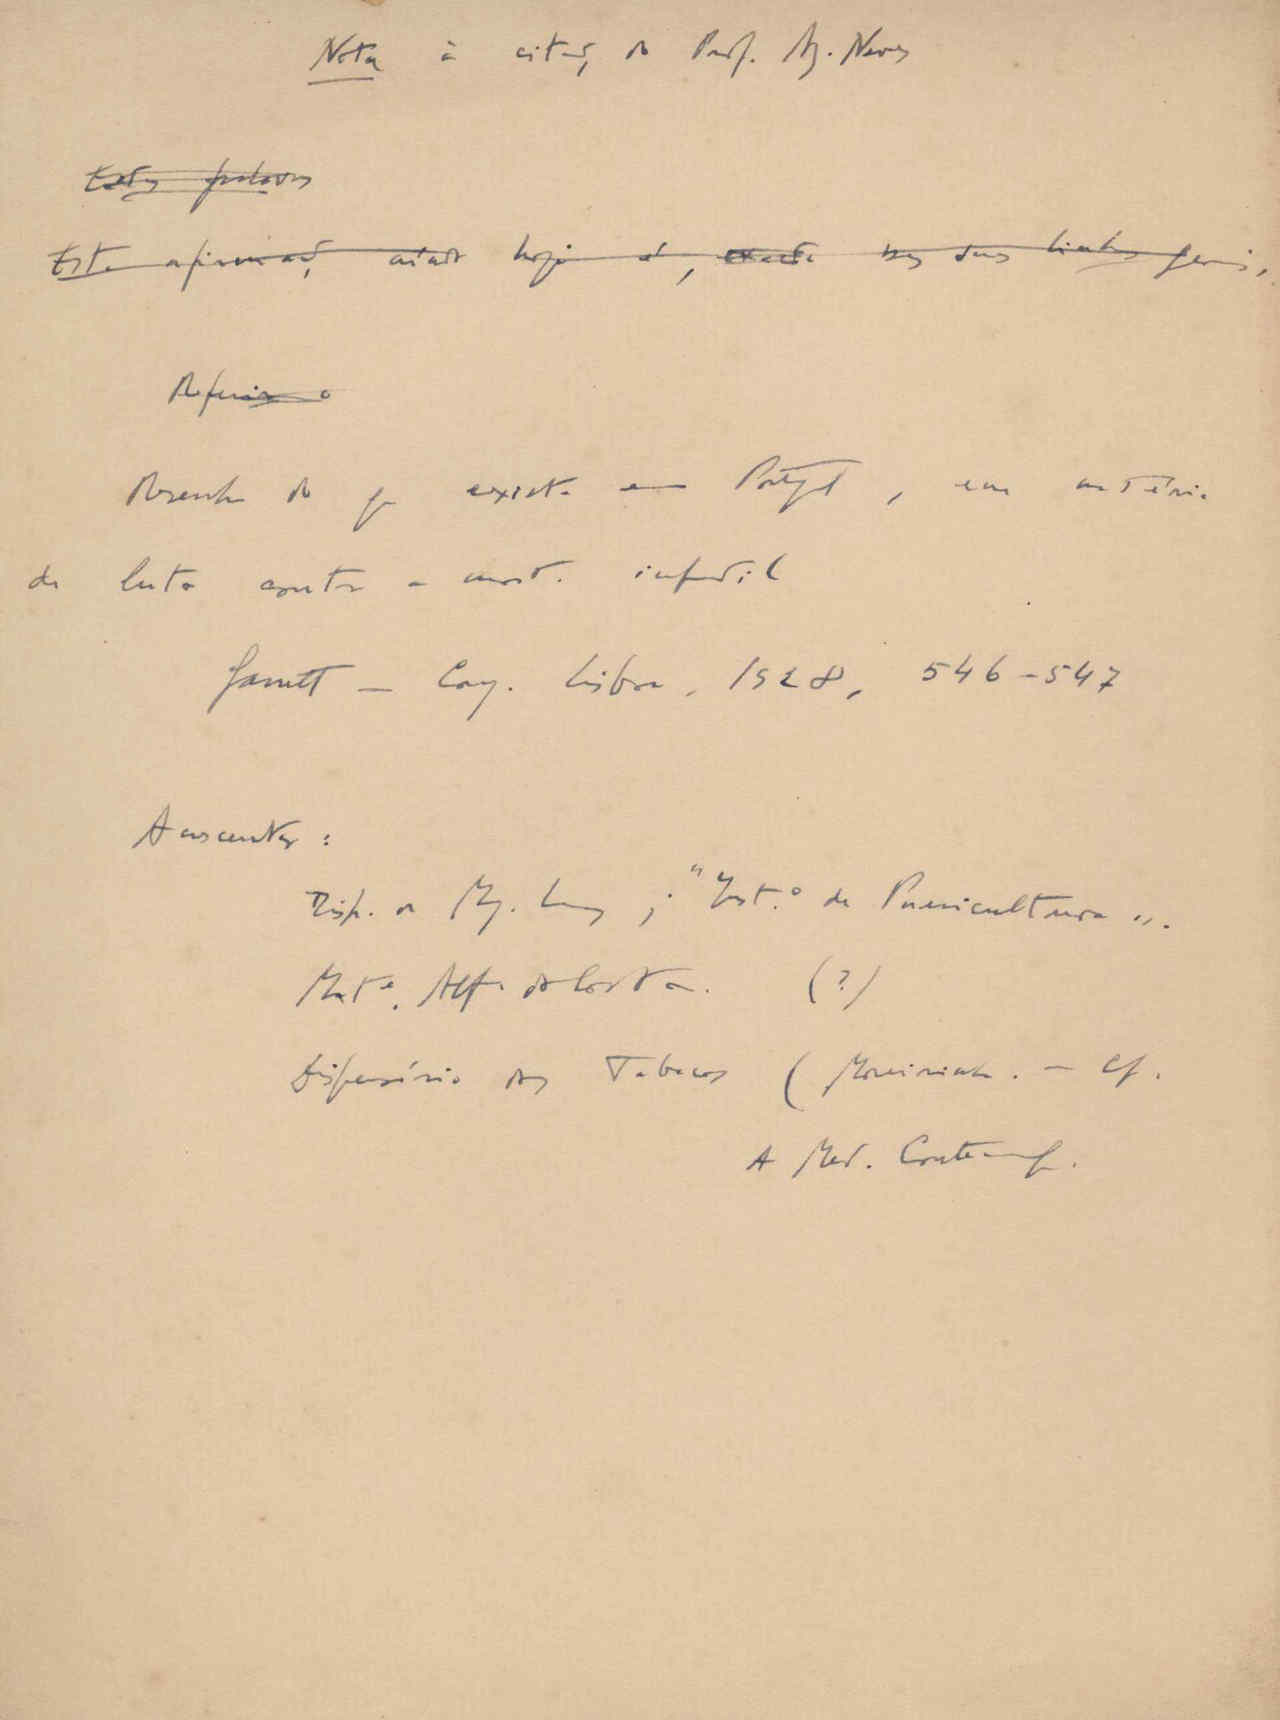 Nota à citaç, do Prof. Az. Neves
Estas palavras
Esta afirmaç, ainda hoje é, exacta nas suas linhas gerais,
Referir o
Resenha do q existe em Portugal, em matéria
de luta contra a mort. infantil
Garrett — Cong. Lisboa, 1928, 546-547
Acrescentar:
Disp. de ; "Inst.º de Puericultura".
Mat.e Alf. da Costa. (?)
Dispensário dos Tabacos ( — Cf.
A Med. Contemp.